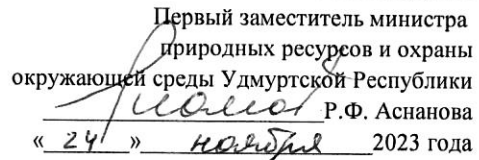 Первый заместитель министра
природных ресурсов и охраны
окружающей среды Удмуртской Республики
Р.Ф. Аснанова
« 24 » ноября 2023 года